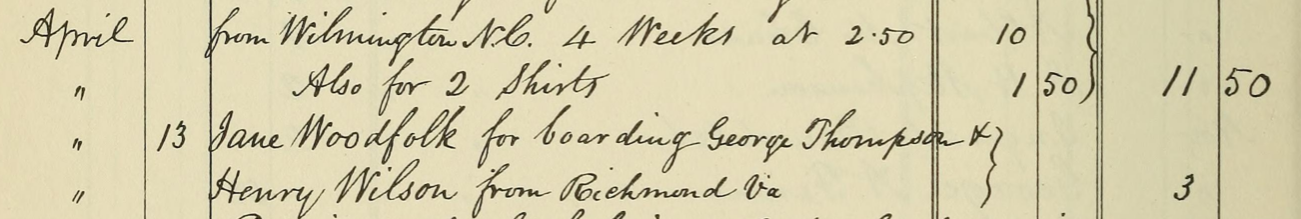 April from Wilmington N.C. 4 Weeks at 2.50 10
" Also for 2 Shirts 1 50 11 50
" 13 Jane Woodfolk for boarding George Thompson &
" Henry Wilson from Richmond Va 3